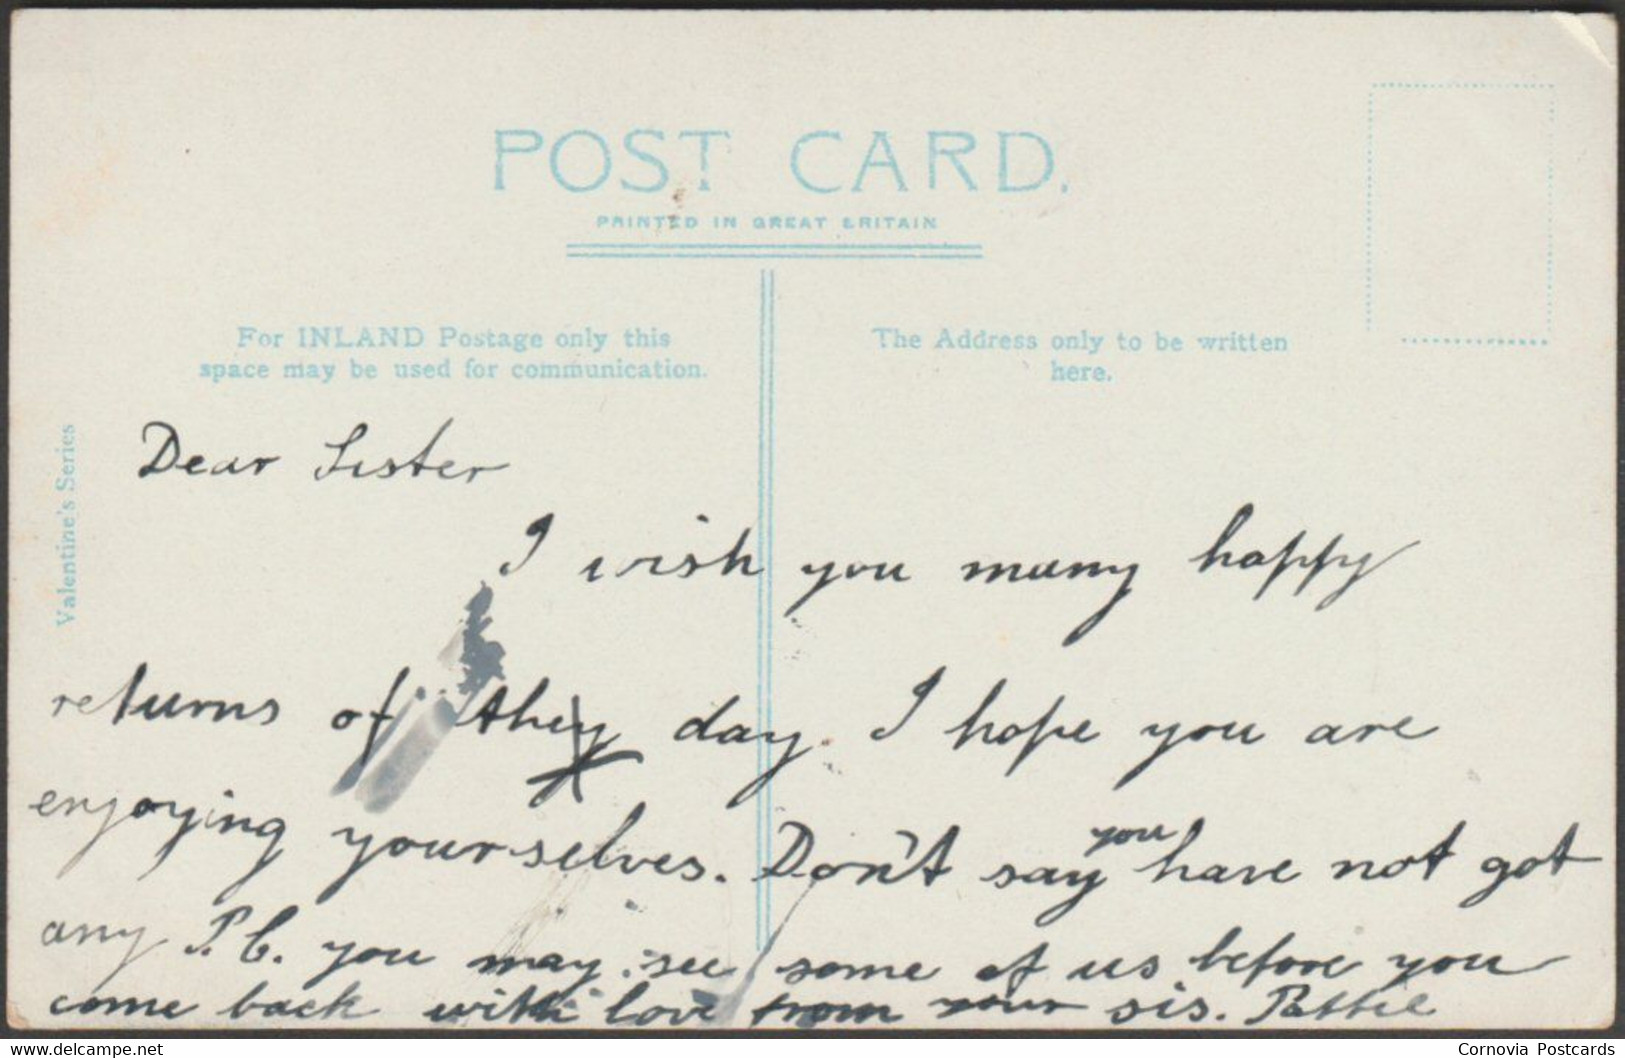 POST CARD.
PRINTED IN GREAT BRITAIN
For INLAND Postage only this
space may be used for communication.
The Address only to be written
here.
Valentine's Series
Dear Sister
I wish you many happy
returns of the day. I hope you are
enjoying yourselves. Don't say you have not got
any P.C. you may see some of us before you
come back with love from your sis. Pattie
delcampe.net
Cornovia Postcards